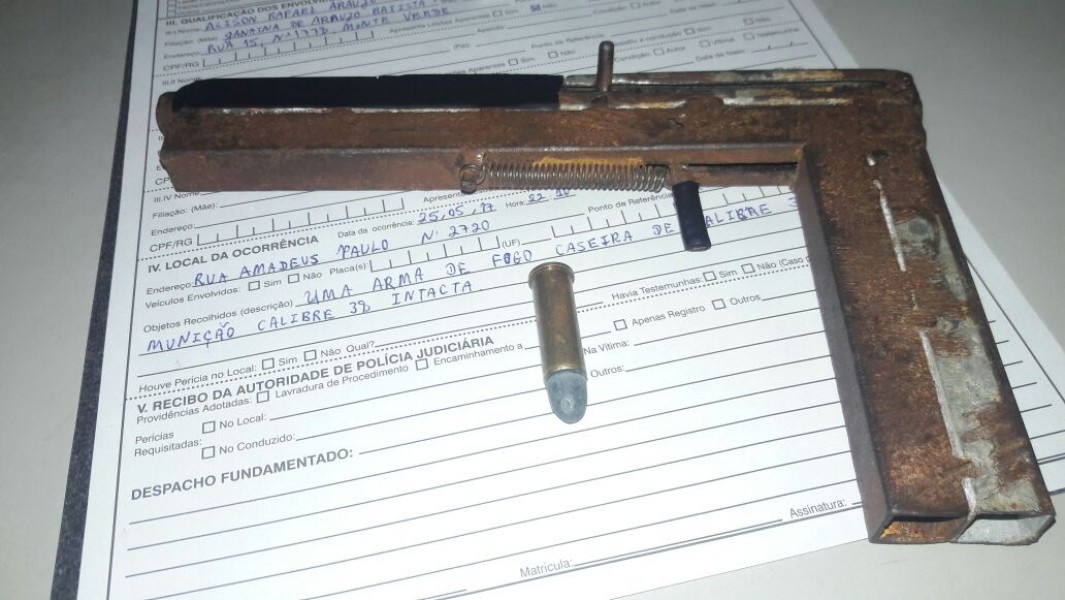 III. QUALIFICAÇÃO DOS ENVOLV
III.I Nome: ALISON RAFAEL ARAUJO
Filiação: (Mãe) JANAINA DE ARAUJO BATISTA
Endereço: RUA 15, Nº 1778 MONTE VERDE
CPF/RG
III.II Nome
III.IV Nome
Filiação: (Mãe):
Endereço:
CPF/RG
IV. LOCAL DA OCORRÊNCIA Data da ocorrência: 25,05,17 Hora: 22 Ponto de Referência
Endereço: RUA AMADEUS PAULO Nº 2720
Veículos Envolvidos: Sim Não Placa(s) (UF)
Objetos Recolhidos (descrição) UMA ARMA DE FOGO CASEIRA DE CALIBRE 3
MUNIÇÃO CALIBRE 38 INTACTA
Havia Testemunhas: Sim Não (Caso
Houve Perícia no Local: Sim Não Qual?
Apenas Registro Outros
V. RECIBO DA AUTORIDADE DE POLÍCIA JUDICIÁRIA
Providências Adotadas: Lavradura de Procedimento Encaminhamento a
Perícias Requisitadas: No Local: Na Vítima:
No Conduzido: Outros:
DESPACHO FUNDAMENTADO:
Assinatura:
Matrícula: